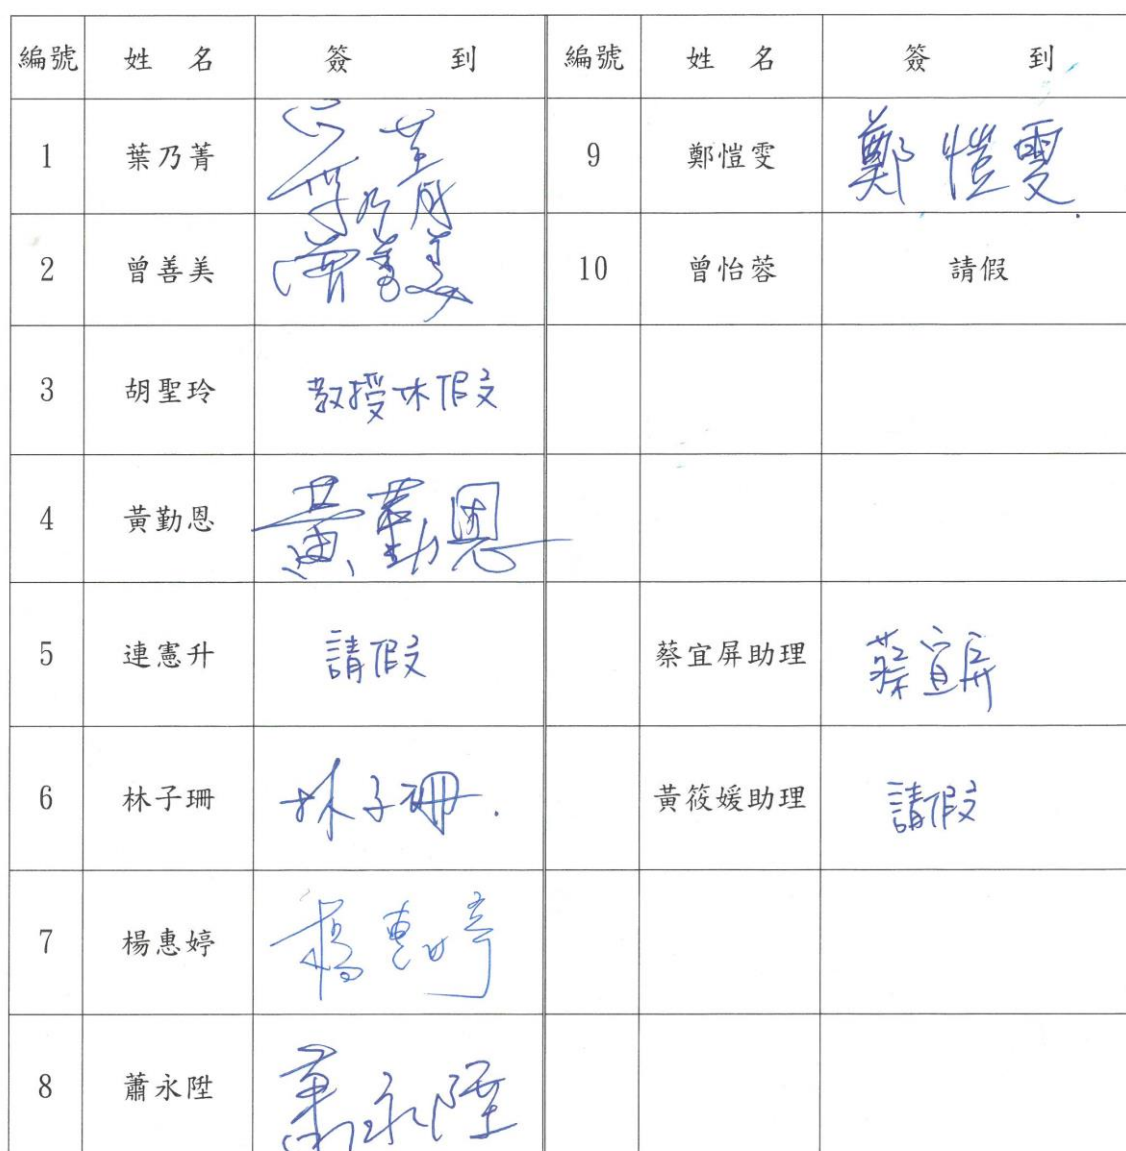 編號 姓名 簽到 編號 姓名 簽到
1 葉乃菁 葉乃菁 9 鄭愷雯 鄭愷雯
2 曾善美 曾善美 10 曾怡蓉 請假
3 胡聖玲 教授休假
4 黃勤恩 黃勤恩
5 連憲升 請假 蔡宜屏助理 蔡宜屏
6 林子珊 林子珊. 黃筱媛助理 請假
7 楊惠婷 楊惠婷
8 蕭永陞 蕭永陞